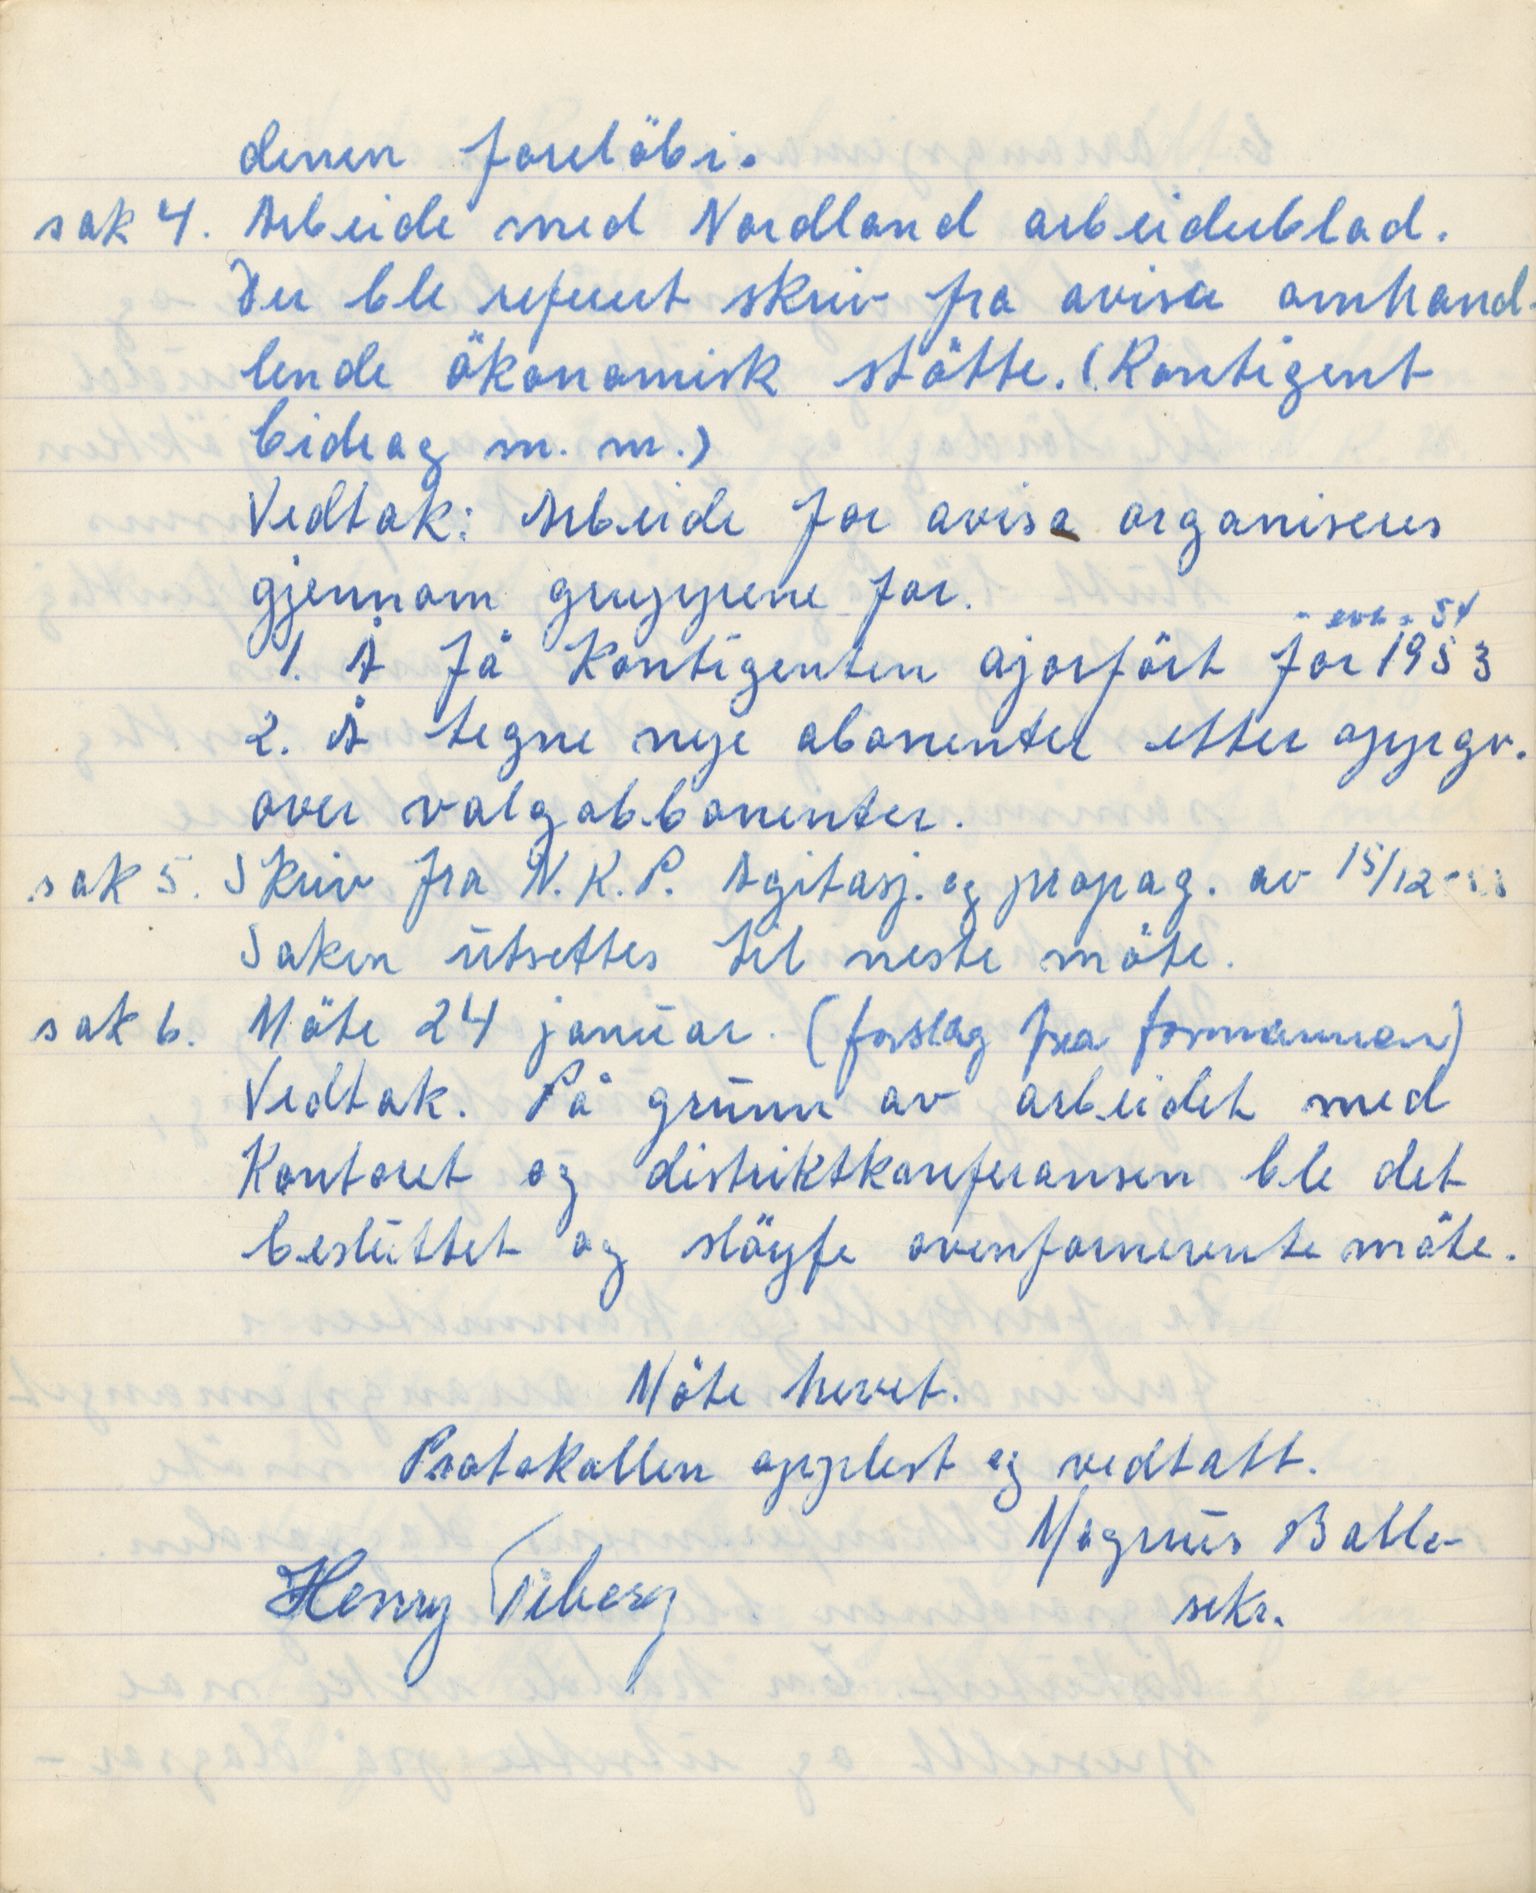 denen forelöbi.
sak 4. Arbeide med Nordland arbeiderblad.
Der ble referert skriv fra avisa omhand-
lende ökonomisk stötte. (Kontigent
bidrag m. m.)
Vedtak: Arbeide for avisa organiseres
gjennom gruppene for.
- evt. 54
1. Å få Kontigenten ajorfört for 1953
2. Å tegne nye abonenter etter oppgv.
over valgabbonenter.
sak 5. Skriv fra N. K. P. Agitasj. og propag. av 15/12-
Saken utsettes til neste möte.
sak 6. Möte 24 januar. (forslag fra formannen)
Vedtak. På grunn av arbeidet med
Kontoret og distriktkonferansen ble det
besluttet og slöyfe ovenfornevente möte.
Möte hevet.
Protokollen opplest og vedtatt.
Magnus Balle
Henry Tiberg
sekr.